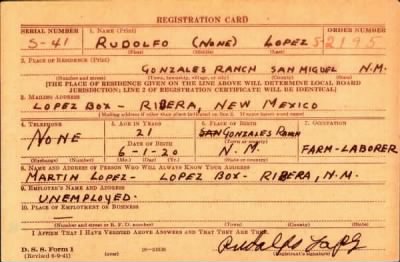 REGISTRATION CARD
SERIAL NUMBER 1. NAME (Print) ORDER NUMBER
S-41 RUDOLFO (NONE) LOPEZ S-2195
(First) (Middle) (Last)
2. PLACE OF RESIDENCE (Print)
GONZALES RANCH SAN MIGUEL N.M.
(Number and street) (Town, township, village, or city) (County) (State)
[THE PLACE OF RESIDENCE GIVEN ON THE LINE ABOVE WILL DETERMINE LOCAL BOARD
JURISDICTION; LINE 2 OF REGISTRATION CERTIFICATE WILL BE IDENTICAL]
3. MAILING ADDRESS
LOPEZ BOX - RIBERA, NEW MEXICO
[Mailing address if other than place indicated on line 2. If same insert word same]
4. TELEPHONE 5. AGE IN YEARS 6. PLACE OF BIRTH 7. OCCUPATION
NONE 21 SAN GONZALES RANCH
DATE OF BIRTH (Town or county)
6-1-20 N. M. FARM-LABORER
(Exchange) (Number) (Mo.) (Day) (Yr.) (State or country)
8. NAME AND ADDRESS OF PERSON WHO WILL ALWAYS KNOW YOUR ADDRESS
MARTIN LOPEZ - LOPEZ BOX - RIBERA, N.M.
9. EMPLOYER'S NAME AND ADDRESS
UNEMPLOYED.
10. PLACE OF EMPLOYMENT OR BUSINESS
(Number and street or R. F. D. number) (Town) (County) (State)
I AFFIRM THAT I HAVE VERIFIED ABOVE ANSWERS AND THAT THEY ARE TRUE.
D. S. S. Form 1
(Revised 6-9-41) (over) (Registrant's signature)